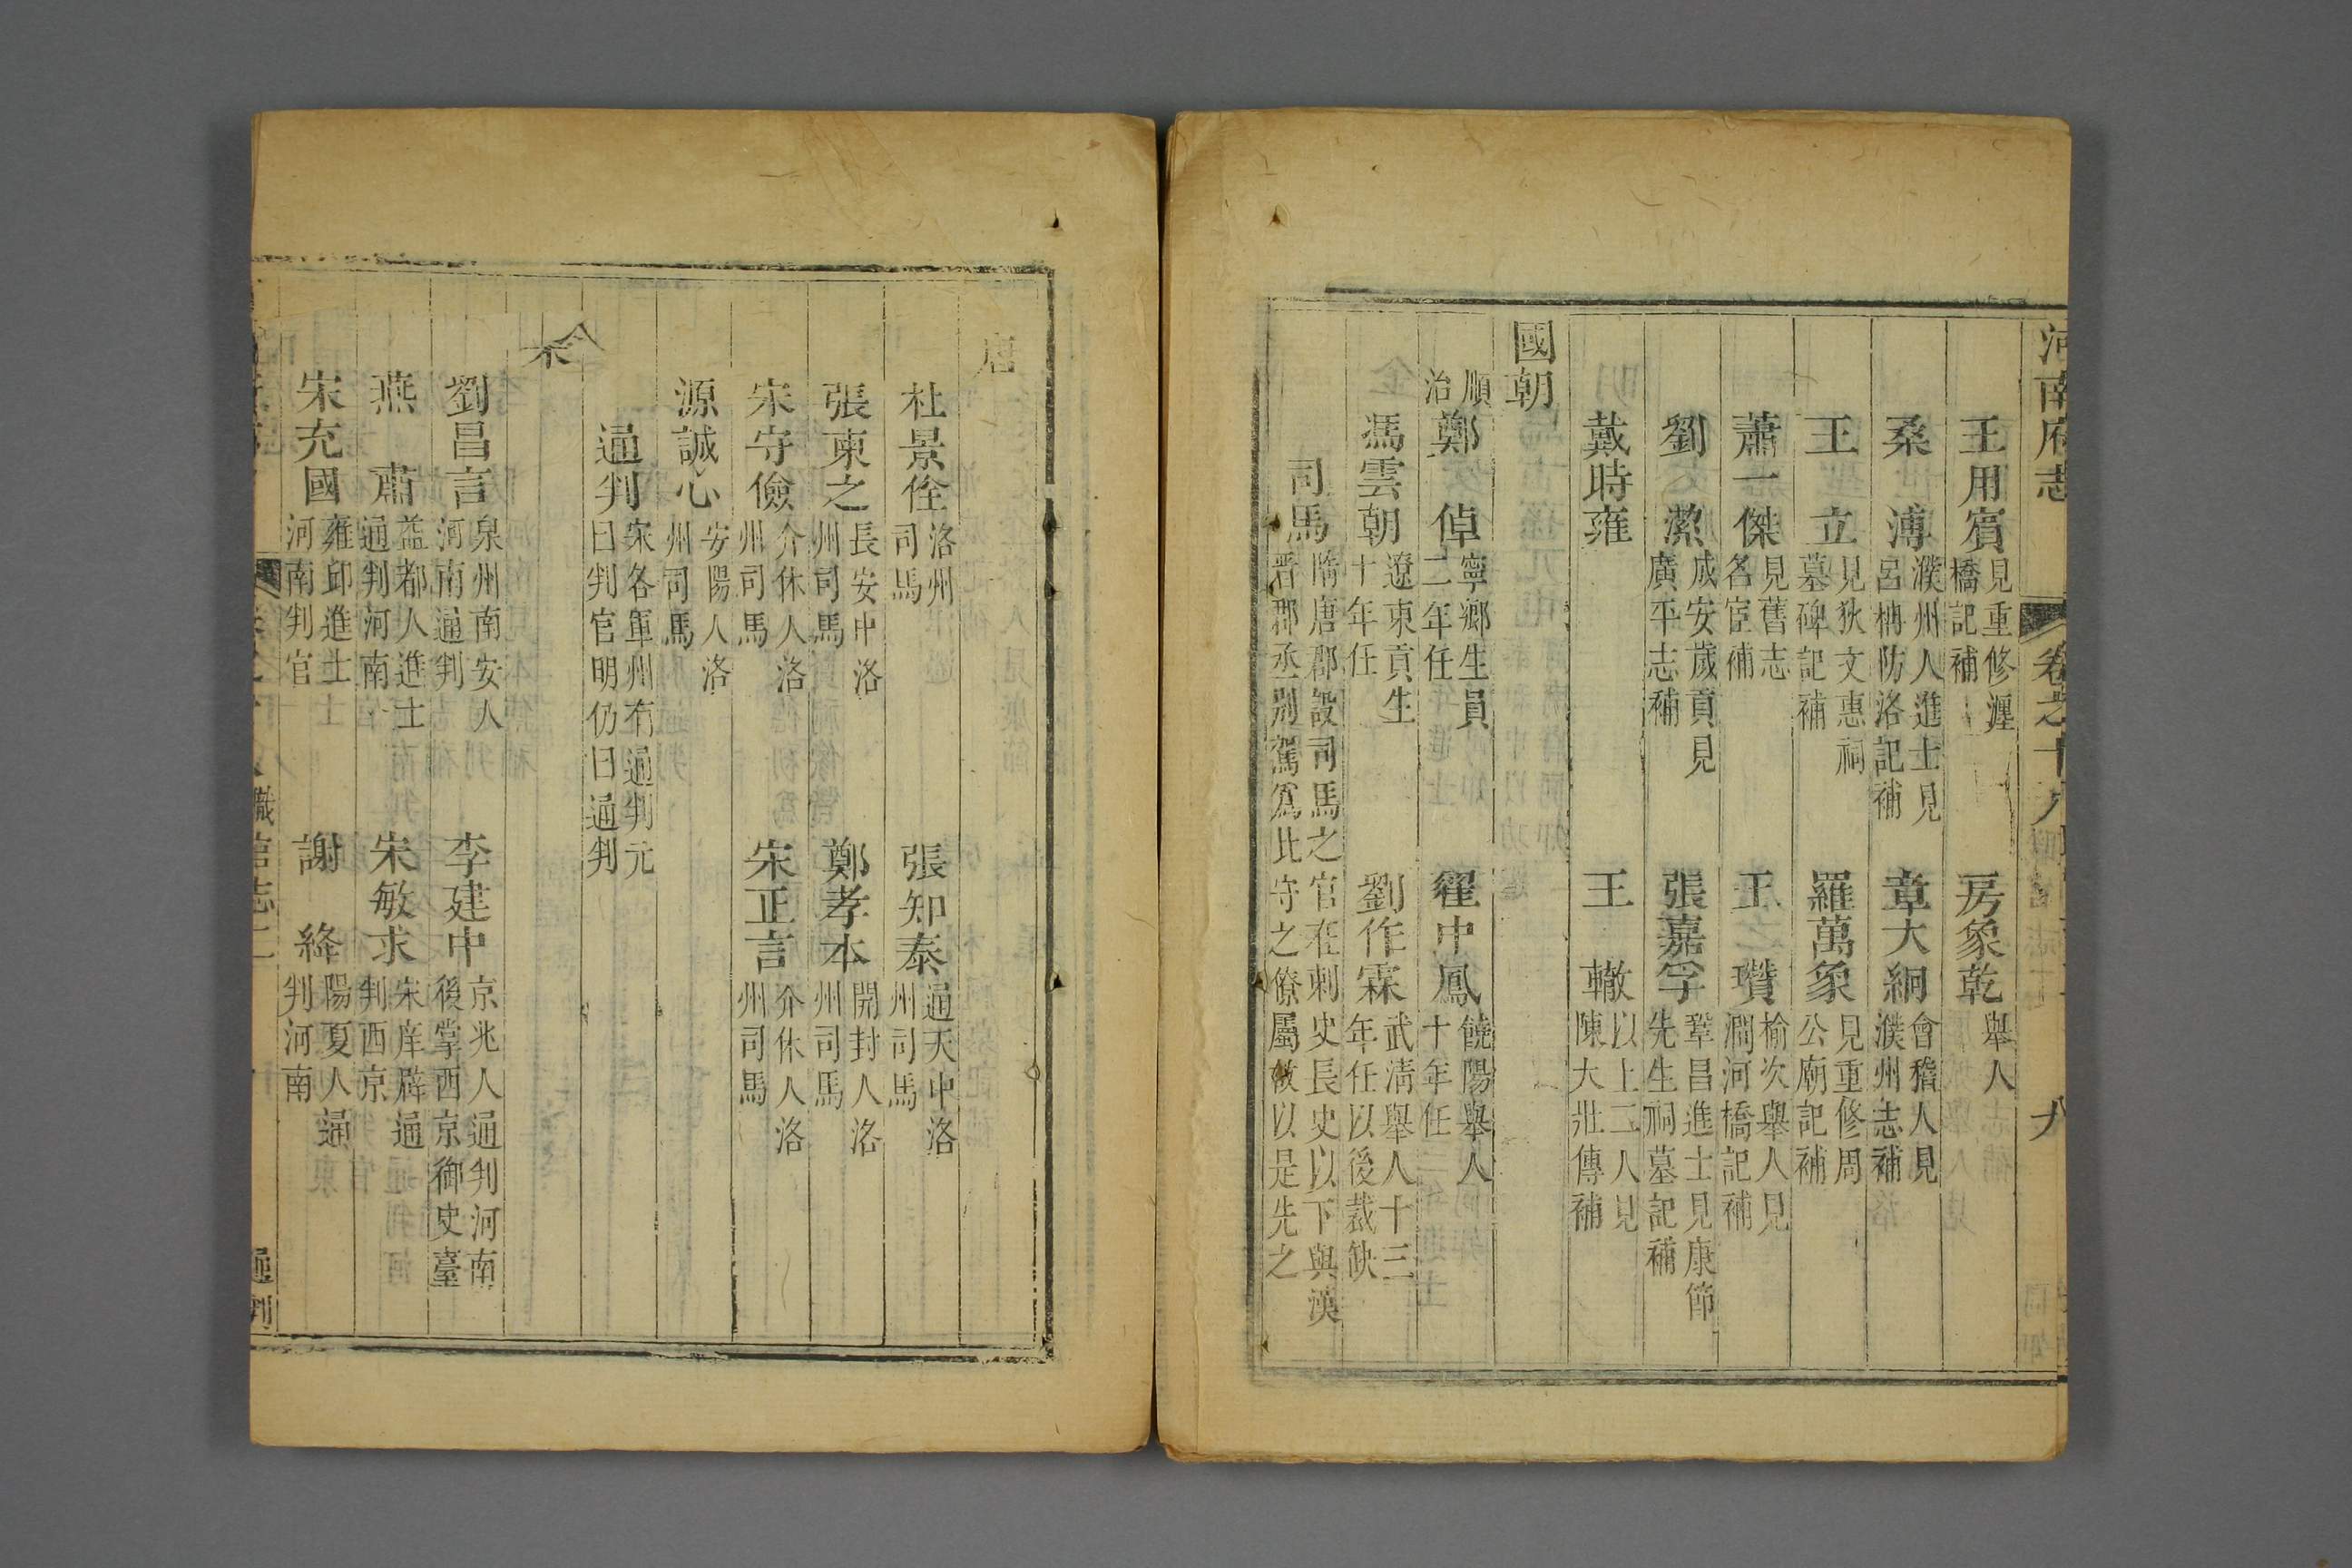 河南府志
卷之十八
九
王用賓 見重修瀍橋記補
房象乾 舉人
桑溥 濮州人進士見呂柟防洛記補
章大綗 會稽人見濮州志補
王立 見狄文惠祠墓碑記補
羅萬象 見重修周公廟記補
蕭一傑 見舊志名宦補
王瓚 榆次舉人見澗河橋記補
劉潔 成安歲貢見廣平志補
張嘉孚 鞏昌進士見康節先生祠墓記補
戴時雍
王轍 以上二人見陳大壯傳補
國朝
順治 鄭倬 寧鄉生員二年任
翟中鳳 饒陽舉人十年任
馮雲朝 遼東貢生十年任
劉作霖 武清舉人十三年任以後裁缺
司馬 隋唐郡設司馬之官在刺史長史以下與漢晋郡丞別駕爲比守之僚屬故以是先之
唐
杜景佺 洛州司馬
張知泰 通天中洛州司馬
張柬之 長安中洛州司馬
鄭孝本 開封人洛州司馬
宋守儉 介休人洛州司馬
宋正言 介休人洛州司馬
源誠心 安陽人洛州司馬
通判 宋各軍州有通判元曰判官明仍曰通判
宋
劉昌言 泉州南安人河南通判
李建中 京兆人通判河南後掌西京御史臺
燕肅 益都人進士通判河南
宋敏求 宋庠辟通判西京
宋充國 雍邱進士河南判官
謝絳 陽夏人通判河南
職官志二
通判